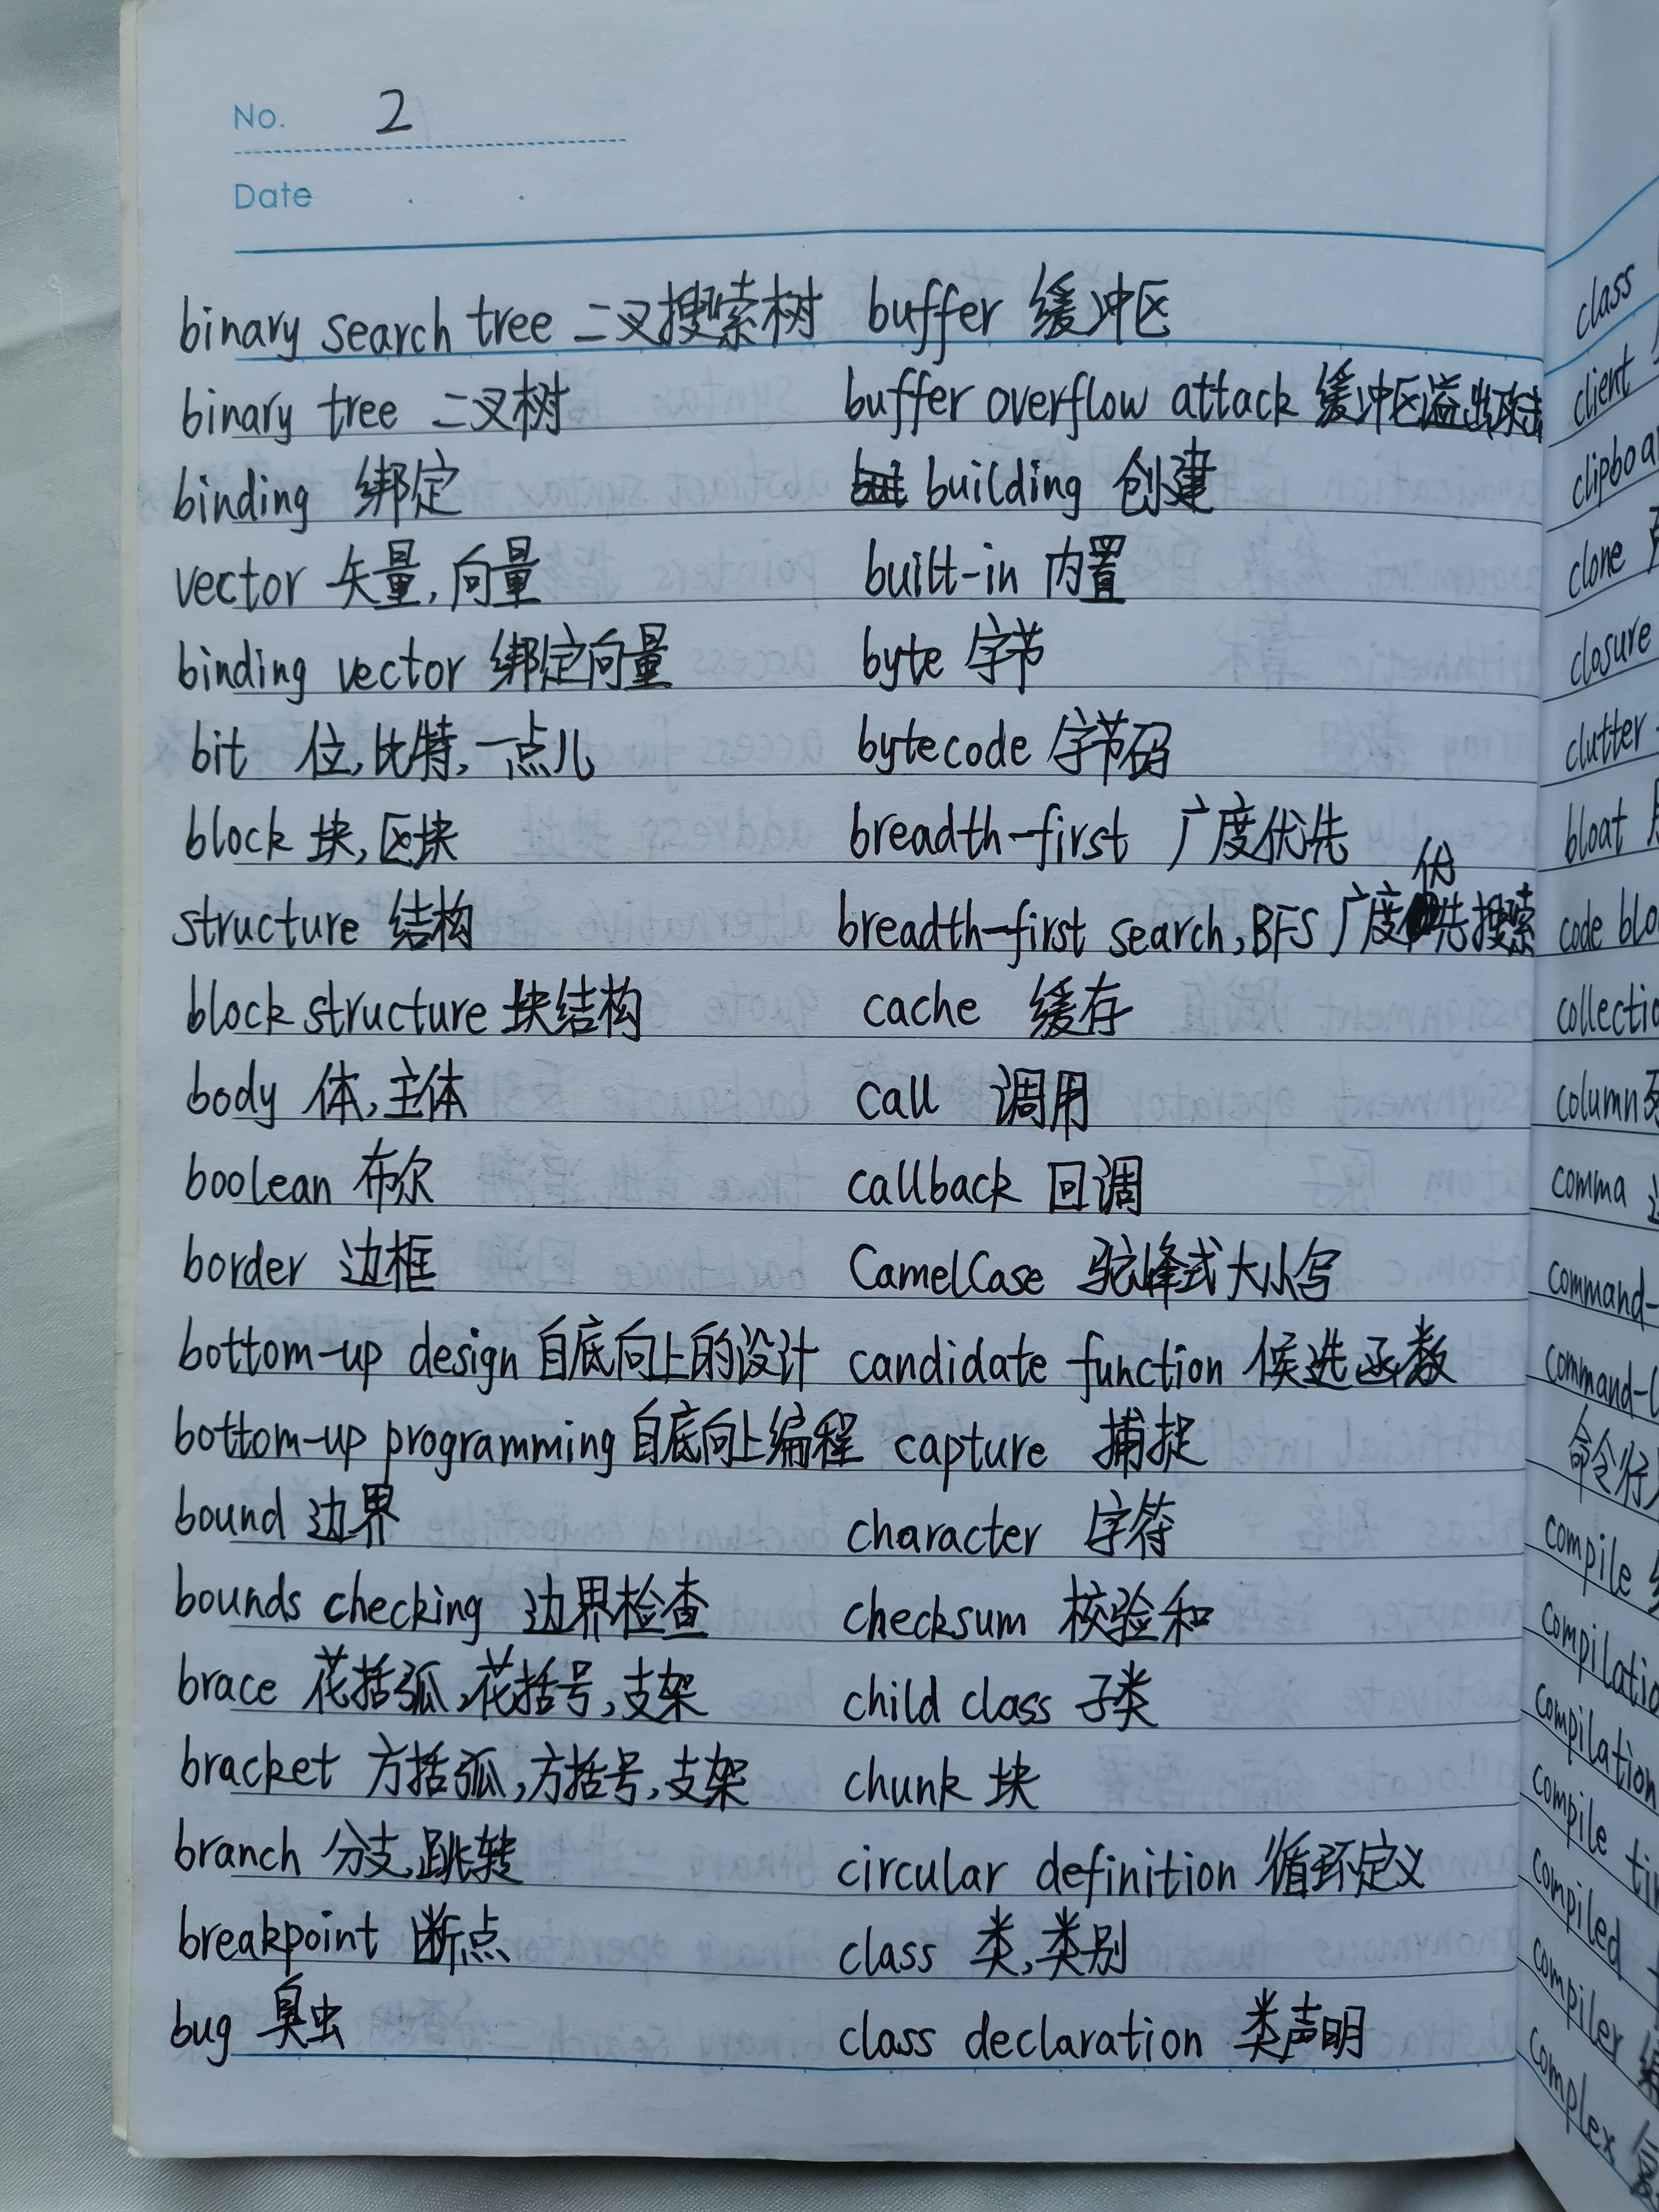 No. 2
Date
binary search tree 二叉搜索树
binary tree 二叉树
binding 绑定
vector 矢量,向量
binding vector 绑定向量
bit 位,比特,一点儿
block 块,区块
structure 结构
block structure 块结构
body 体,主体
boolean 布尔
border 边框
bottom-up design 自底向上的设计
bottom-up programming 自底向上编程
bound 边界
bounds checking 边界检查
brace 花括弧,花括号,支架
bracket 方括弧,方括号,支架
branch 分支,跳转
breakpoint 断点
bug 臭虫
buffer 缓冲区
buffer overflow attack 缓冲区溢出攻击
building 创建
built-in 内置
byte 字节
bytecode 字节码
breadth-first 广度优先
breadth-first search,BFS 广度优先搜索
cache 缓存
call 调用
callback 回调
CamelCase 驼峰式大小写
candidate function 候选函数
capture 捕捉
character 字符
checksum 校验和
child class 子类
chunk 块
circular definition 循环定义
class 类,类别
class declaration 类声明
class
client
clone
closure
clutter
bloat
column
comma
command-
命令行
compile
compile
compiled
compiler
complex